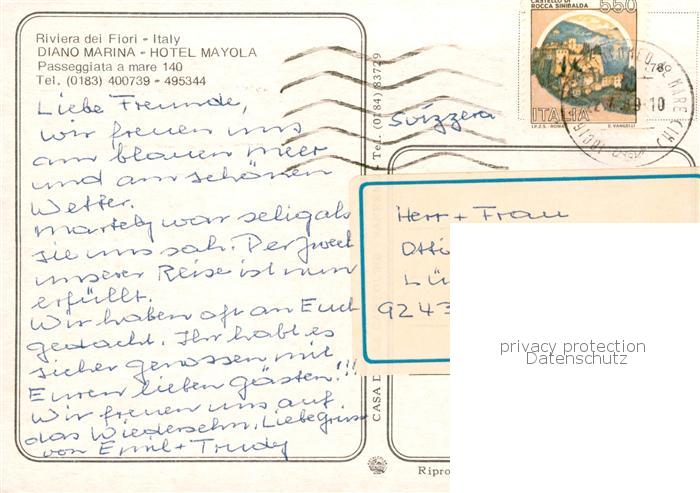 Riviera dei Fiori - Italy
DIANO MARINA - HOTEL MAYOLA
Passeggiata a mare 140
Tel. (0183) 400739 - 495344
Liebe Freunde,
wir freuen uns
am blauen Meer
und am schönen
Wetter.
war selig als
sie uns sah. Der Zweck
unserer Reise ist nun
erfüllt.
Wir haben oft an Euch
gedacht. Ihr habt es
sicher genossen mit
Euren lieben Gästen!!!
Wir freuen uns auf
das Wiedersehn. Liebe Grüsse
von Emil + Trudy
CASA D
Tel. (0184) 83729
CASTELLO DI
ROCCA SINIBALDA
550
ITALIA
I.P.Z.S. - ROMA
E. VANGELLI
Svizzera
Herr + Frau
Otti
Lü
9243
privacy protection
Datenschutz
Ripro